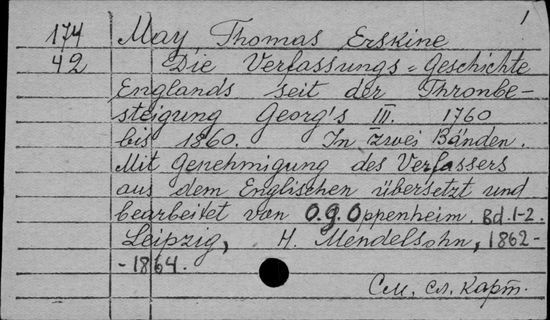 1
174 May, Thomas Erskine
42 Die Verfassungs=Geschichte
Englands seit der Thronbe-
steigung Georg's III. 1760
bis 1860. In zwei Bänden.
Mit Genehmigung des Verfassers
aus dem Englischen übersetzt und
bearbeitet von O.G. Oppenheim. Bd. 1-2.
Leipzig, H. Mendelsohn, 1862-
-1864.
См. сл. карт.